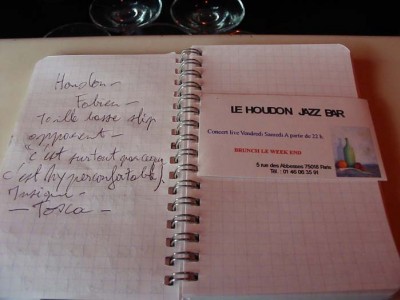 Houdon -
Fabien -
Taille basse slip
apparent -
"c'est surtout parce que
c'est hyperconfortable)
Musique -
- Tosca -
LE HOUDON JAZZ BAR
Concert live Vendredi Samedi A partir de 22 h.
BRUNCH LE WEEK END
5 rue des Abbesses 75018 Paris
Tél : 01 46 06 35 91